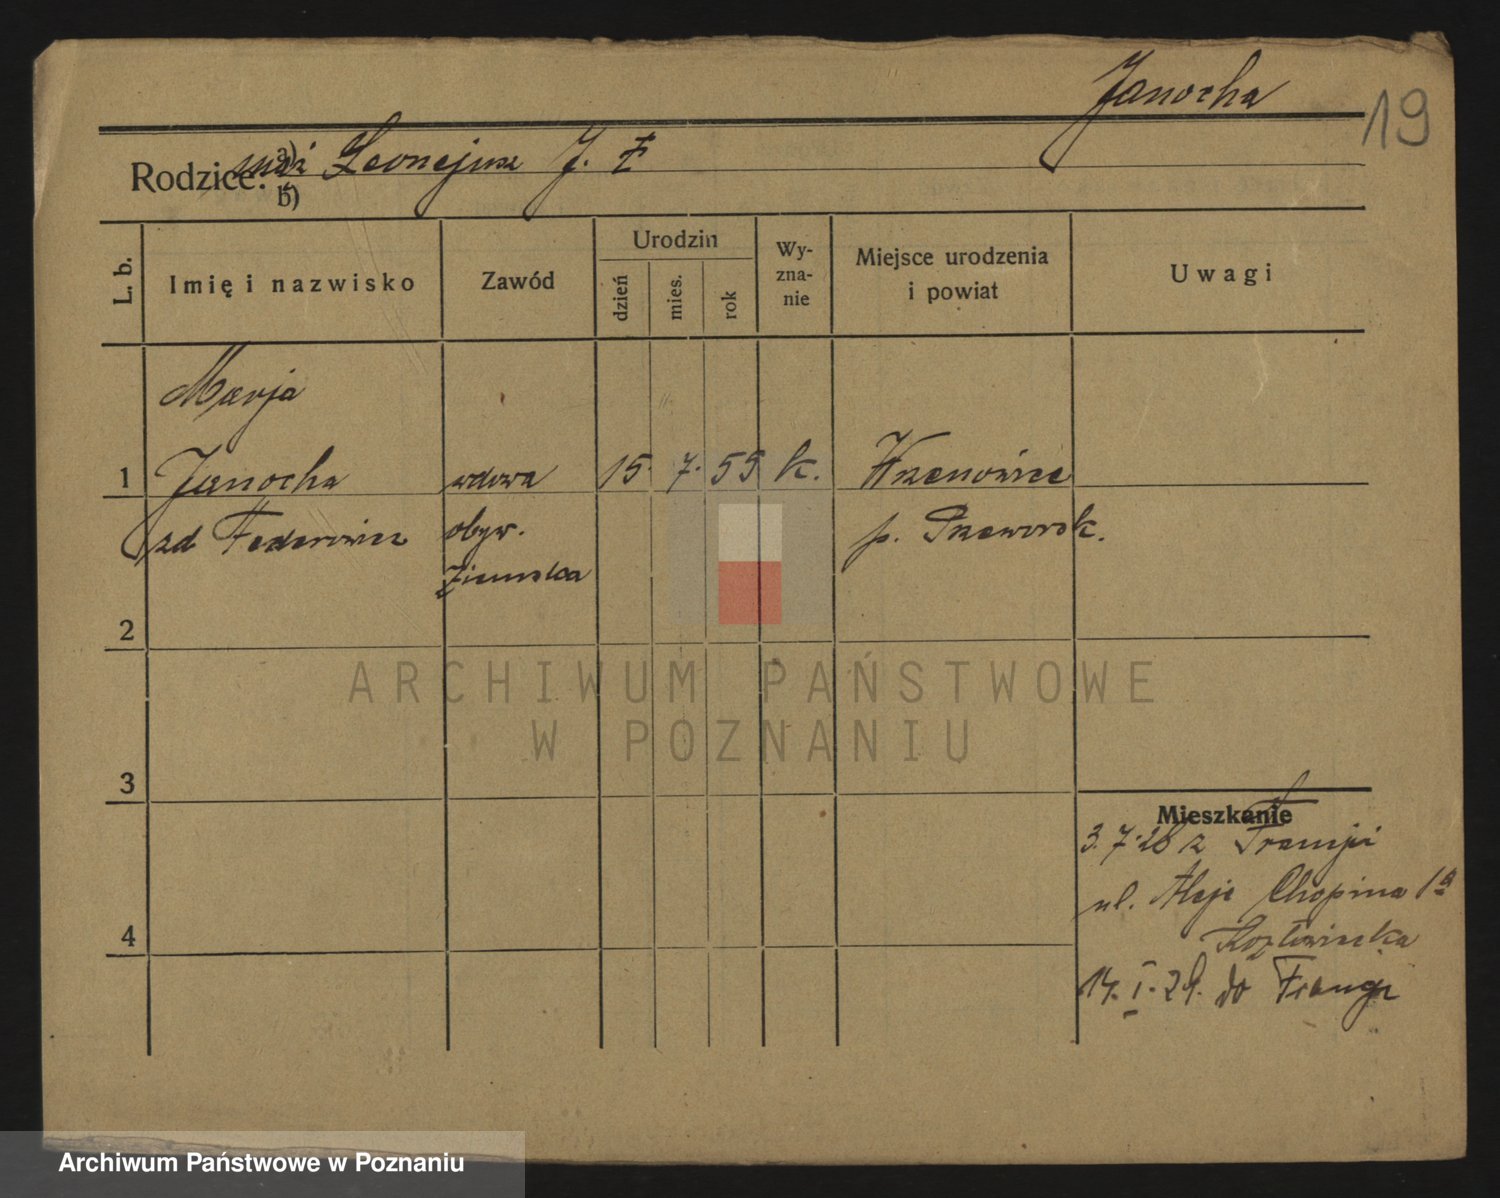 Janocha
19
Rodzice: a) mąż Leonejusz J. Ł
b)
L. b.
Imię i nazwisko
Zawód
Urodzin
dzień
mies.
rok
Wy-
zna-
nie
Miejsce urodzenia
i powiat
Uwagi
Marja
1 Janocha wdowa 15. 7. 55 k.
zd Federowicz obyw. p. Przeworsk.
ziemska
2
ARCHIWUM PAŃSTWOWE
W POZNANIU
3
Mieszkanie
3. 7. 28 z Francji
ul. Aleje Chopina 1a
Kozłowiecka
4
14. I. 29. do Francji
Archiwum Państwowe w Poznaniu